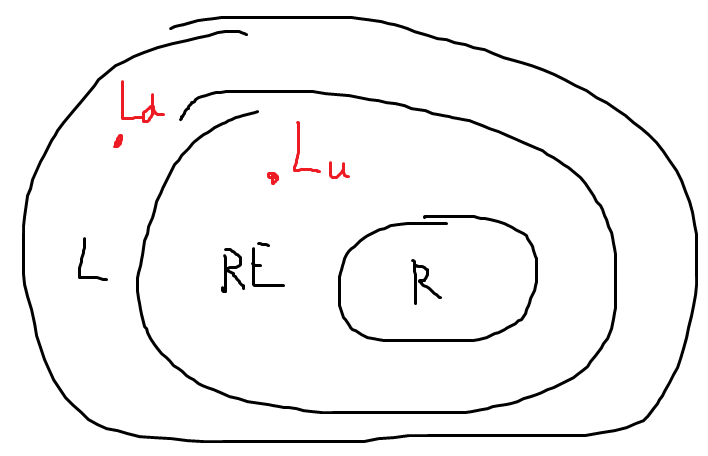 Ld
Lu
L
RE
R